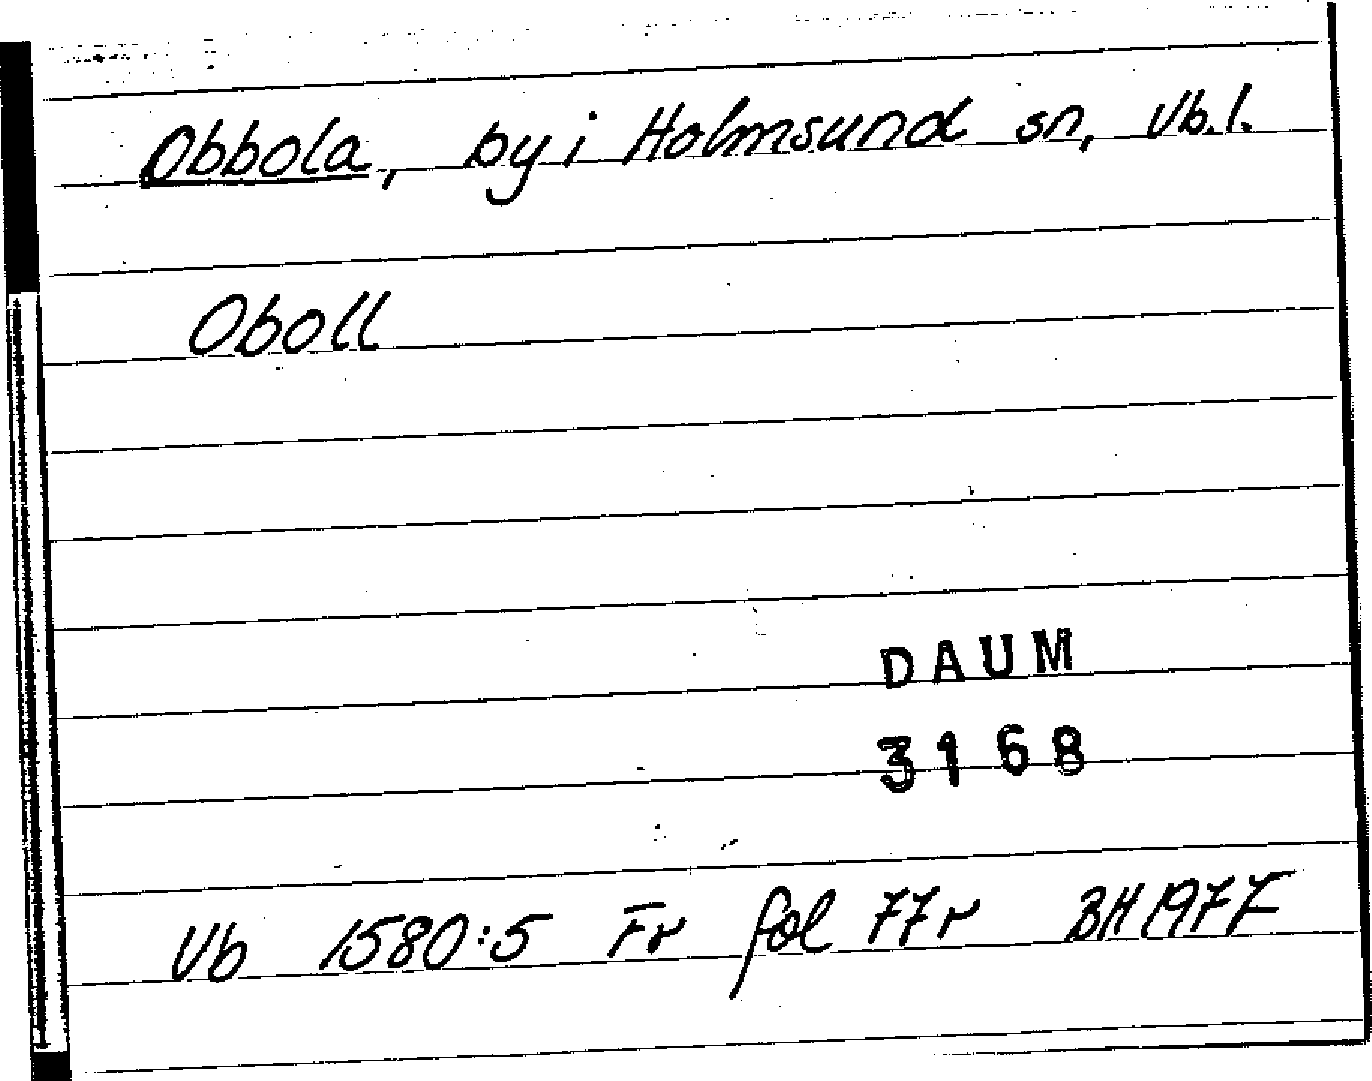 Obbola, by i Holmsund sn, Vb.l.
Oboll
DAUM
3168
Vb 1580:5 Fr fol 77r BH 1977